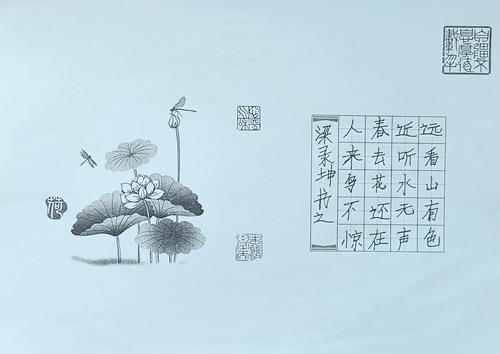 远看山有色
近听水无声
春去花还在
人来鸟不惊
梁录坤书之
荷